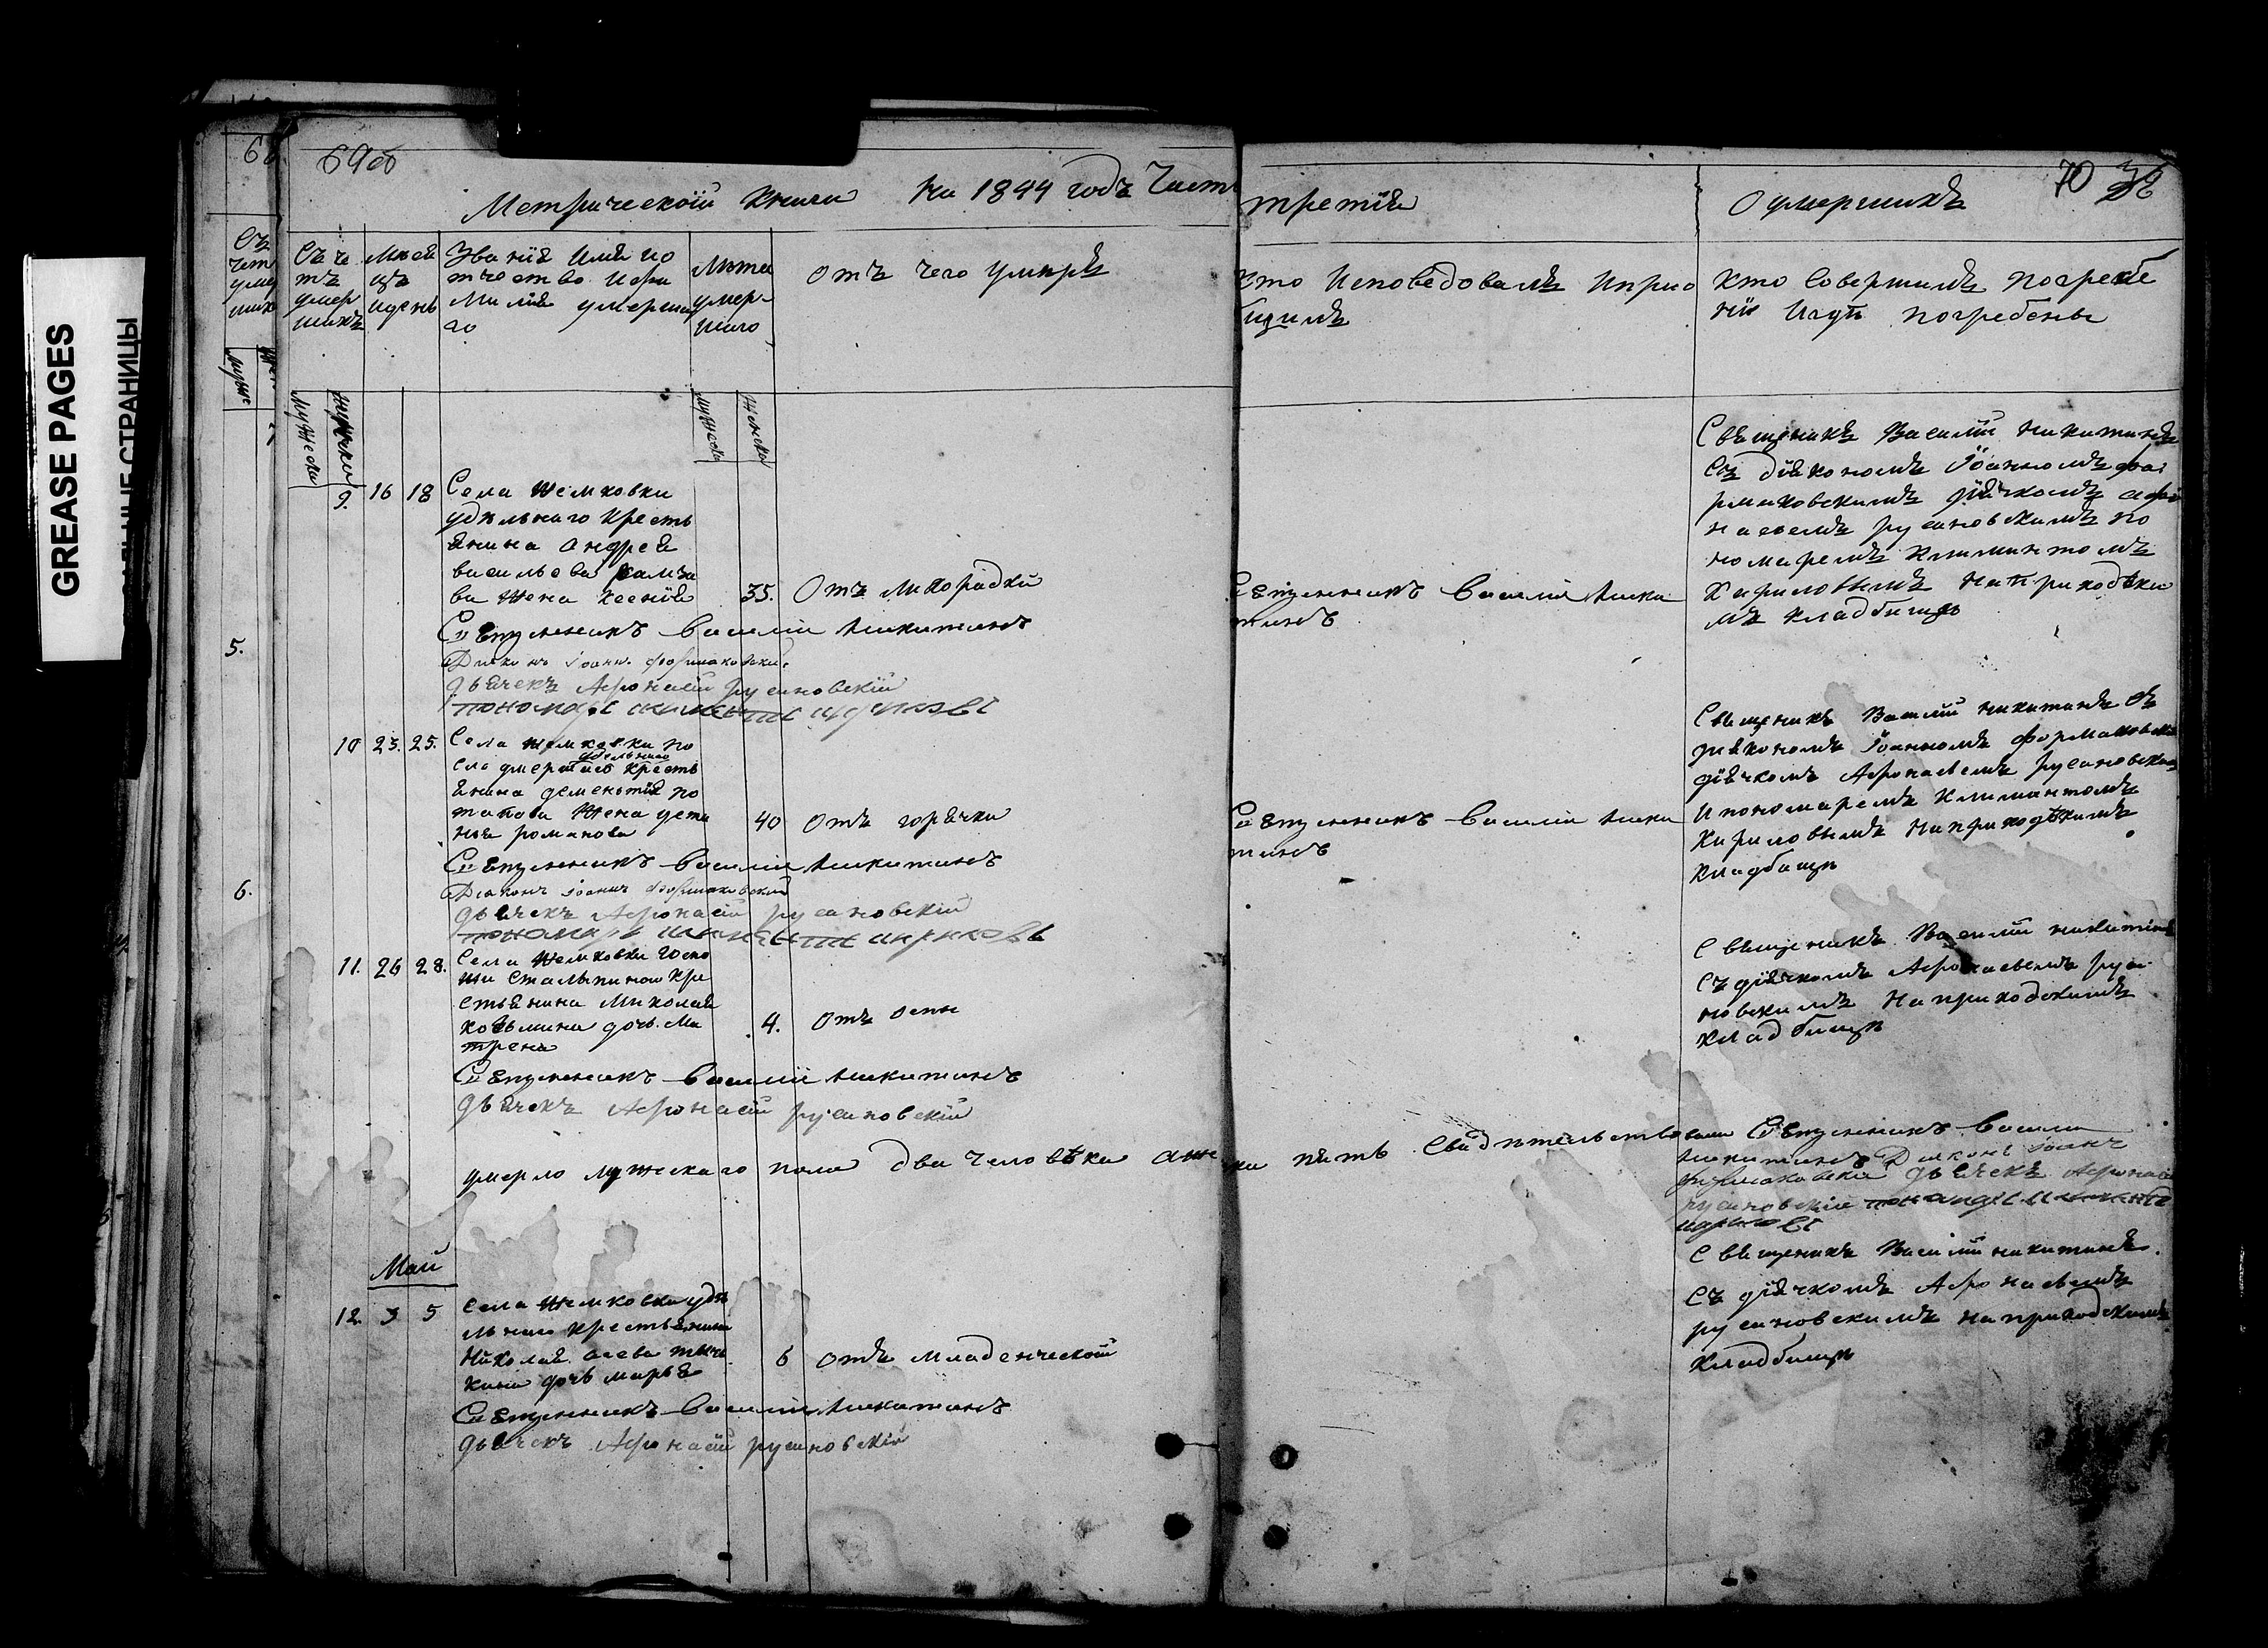 GREASE PAGES
69об
70
Метрической книги на 1844 годъ Часть третія
О умершихъ
Съ че
тъ
умер
шихъ
Мѣся
цъ
и день
Званія Имя ио
тчество и фа
милія умерша
го
Лѣта
умер-
шаго
отъ чего умиръ
кто исповедовалъ и прио
бщилъ
кто Совершилъ погребе
ніи и гдѣ погребены
мужеска
женска
мужеска
женска
9. 16 18
Села Жемковки
удѣльнаго кресть
янина Андрея
васильева
ва жена ксенія
35. Отъ лихорадки
Священникъ Василій Ники
тинъ
Священикъ Василіи никитинъ
Съ діякономъ Іоанномъ фо
рмаковскимъ дьячкомъ афо
насеемъ русановскимъ по
номаремъ климинтомъ
Кириловымъ на приходски
мъ кладбищѣ
Священникъ Василій Никитинъ
Диаконъ Іоаннъ Формаковскій
дьячекъ Афонасіи русановскій
пономарь
10 23. 25.
Села жемковки по
удельнаго
сле умершаго кресть
янина деменьтія по
тапова жена устинья
романова
40 отъ горячки
Священникъ Василій Ники
тинъ
Священикъ Василіи никитинъ съ
діякономъ Іоанномъ формаковск
дьячкомъ Афонасьемъ русановским
и пономаремъ Климантомъ
Кириловымъ на приходскимъ
кладбищѣ
Священникъ Василій Никитинъ
Диаконъ Іоаннъ Формаковскій
дьячекъ Афонасіи русановскій
пономарь
11. 26 28.
Села Жемковки госпо
жи Сталыпиной кре
стьянина Миколая
козьмина дочь Ма
трена
4. отъ оспы
Священикъ Василіи никитинъ
съ дьячкомъ Афонасьемъ руса
новскимъ на приходскимъ
кладбищѣ
Священникъ Василій Никитинъ
дьячекъ Афонасіи русановскій
умерло мужескаго пола два человѣка а женска пять Свидѣтельствовали Священникъ Василій
Никитинъ Диаконъ Іоаннъ
Формаковскій дьячекъ Афонасіи
русановскіи пономарь
Май
12. 3 5
села жемковки удѣ
льнаго крестьянина
Николая
кина дочь марья
6 отъ младенческой
Священикъ Василіи никитинъ
съ дьячкомъ Афонасьемъ
русановскимъ на приходскимъ
кладбищѣ
Священникъ Василій Никитинъ
дьячекъ Афонасіи русановскій
5.
6.